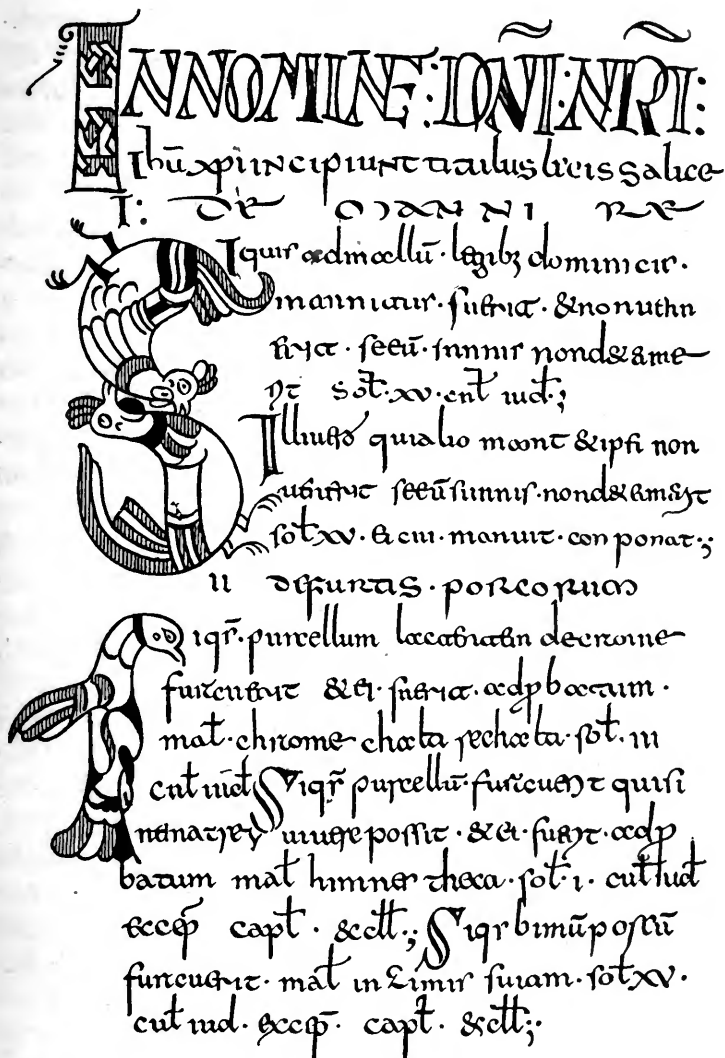 IN NOMINE : DN̄I : NR̄I :
Ihū xpi incipiunt titulus legis salice
I : DE MANNIRE
Si quis ad mallū · legibꝫ dominicis ·
mannitus · fuerit · & non uen
erit · seeū · sunnis non d&ame
rit sol̄ · xv · cul̄ iud̄ ·;
Ille uero qui alio mannit & ipsi non
uenerit seeū sunnis · non d&amerit
sol̄ xv · & cui manuit · conponat ·;
II de furtis · porcorum
Si qr̄ · purcellum lactantem de crinne
furtuerit & ei · fuerit · adp̄batum ·
mal̄ · chrome chalta rechalta · sol̄ · III
cul̄ iud̄ Si qr̄ purcellū · furtuerit qui si
ne matrem uiuere possit · & ei · fuerit · adp̄
batum mal̄ himnes theca · sol̄ · I · cul̄ iud̄
excep̄ capl̄ · & dl̄ ·; Si qr bimū possū
furtuerit · mal̄ in zimis suiam · sol̄ xv ·
cul̄ iud · excep̄ · capl̄ · & dl̄ ·;